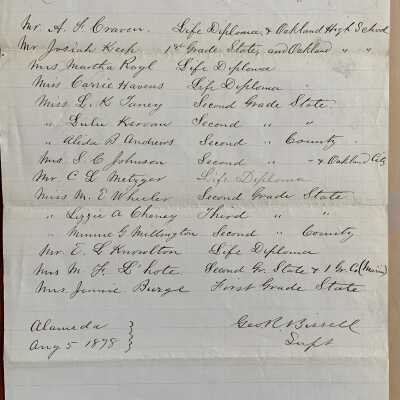 Mr. A. F. Craven. Life Diploma, & Oakland High School
Mr Josiah Keep 1st Grade State, and Oakland " "
Mrs Martha Rayl Life Diploma
Miss Carrie Havens Life Diploma
Miss L. K. Janey Second Grade State
" Lulu Kervan Second " "
" Alida B Andrews Second " County
Mrs. S. C. Johnson Second " " & Oakland City
Mr C L Metzger Life Diploma
Miss M. E Wheeler Second Grade State
" Lizzie A Cheney Third " "
" Minnie G Millington Second " County
Mr. E. L Knowlton Life Diploma
Mrs M. F. L'hote Second Gr. State & 1 Gr. Co (Marin)
Mrs. Jennie Burge First Grade State
Alameda }
Aug 5 1878 }
Geo. R. Bissell
Supt